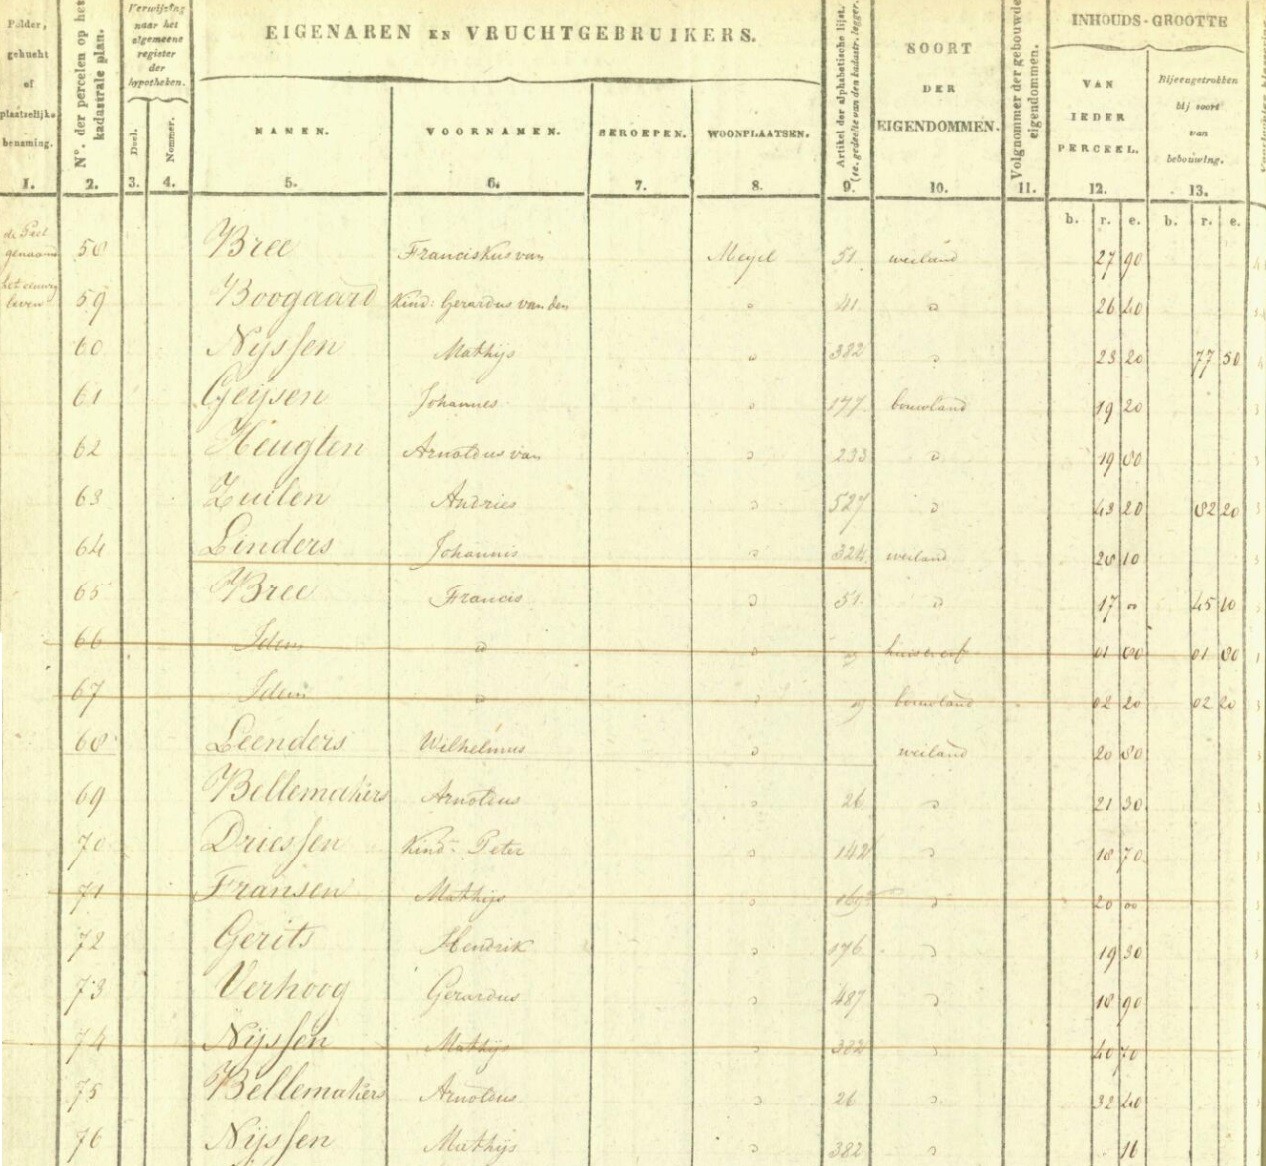 Polder, gehucht of plaatselijke benaming.
No. der percelen op het kadastrale plan.
Verwijzing naar het algemeene register der hypotheken.
Deel.
Nommer.
EIGENAREN EN VRUCHTGEBRUIKERS.
NAMEN.
VOORNAMEN.
BEROEPEN.
WOONPLAATSEN.
Artikel der alphabetische lijst.
SOORT DER EIGENDOMMEN.
Volgnommer der gebouwde eigendommen.
INHOUDS-GROOTTE
VAN IEDER PERCEEL.
Bijeengetrokken bij soort van bebouwing.
1. 2. 3. 4. 5. 6. 7. 8. 9. 10. 11. 12. 13.
b. r. e. b. r. e.
genaamd 58 Bree Franciskus van Meyel 51 weiland 27 90
59 Boogaard Kind: Gerardus van den " 41 " 26 40
60 Nijssen Mathijs " 382 " 23 20 77 50
61 Geijsen Johannes " 177 bouwland 19 20
62 Heugten Arnoldus van " 233 " 19 80
63 Zuilen Andries " 527 " 43 20 82 20
64 Linders Johannis " 324 weiland 28 10
65 Bree Francis " 51 " 17 " 45 10
66 Idem " " " huis en erf 01 80 01 80
67 Idem " " " bouwland 02 20 02 20
68 Leenders Wilhelmus " weiland 20 80
69 Bellemakers Arnoldus " 26 " 21 30
70 Driessen Kind: Peter " 142 " 18 70
71 Fransen Mathijs " 169 " 20 00
72 Gerits Hendrik " 176 " 19 30
73 Verhoog Gerardus " 487 " 18 90
74 Nijssen Mathijs " 382 " 40 70
75 Bellemakers Arnoldus " 26 " 32 40
76 Nijssen Mathijs " 382 " 16